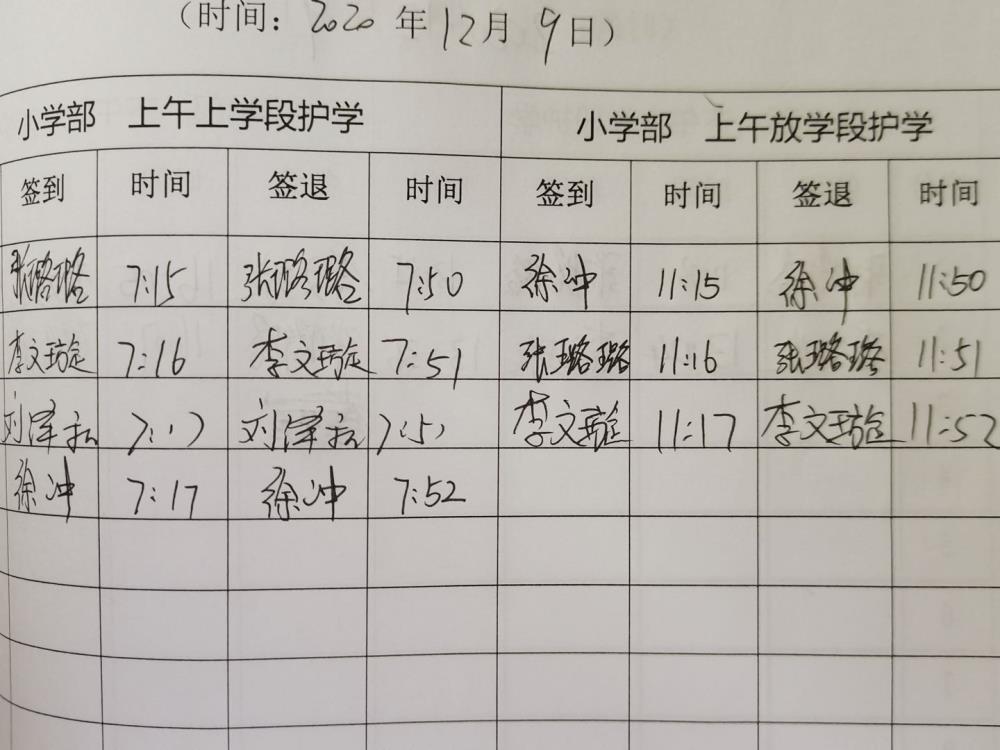 （时间：2020年12月9日）
小学部 上午上学段护学 小学部 上午放学段护学
签到 时间 签退 时间 签到 时间 签退 时间
张璐璐 7:15 张璐璐 7:50 徐冲 11:15 徐冲 11:50
李文璇 7:16 李文璇 7:51 张璐璐 11:16 张璐璐 11:51
刘泽 7:17 刘泽 7:51 李文璇 11:17 李文璇 11:52
徐冲 7:17 徐冲 7:52